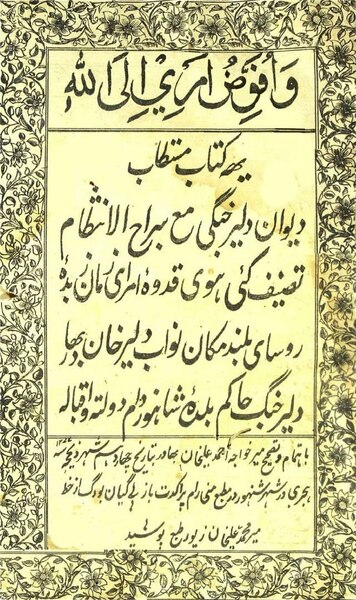 وَاُفَوِّضُ اَمْرِیْ اِلَی اللّٰه
یہ کتاب مستطاب
دیوان دلیر جنگی مع سراج الانتظام
تصنیف کئی ہوی قدوۂ امرای زمان زبدۂ
روسای بلند مکان نواب دلیر خان بہادر
دلیر جنگ حاکم بلدۂ شاہنور دام دولتہ و اقبالہ
باہتمام و تصحیح میر خواجہ احمد علیخان بہادر بتاریخ چہاردہم شہر ذیحجہ
ہجری در شہر در مطبع منی رام پراکرت باز بی گیان بود گ از خط
میر محمد علیخان زیور طبع پوشید